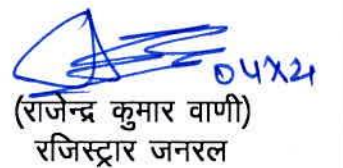 04X21
(राजेन्द्र कुमार वाणी)
रजिस्ट्रार जनरल